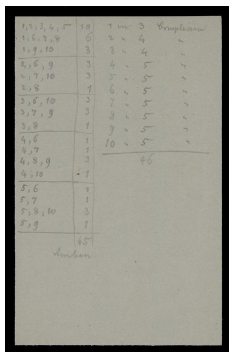 1, 2, 3, 4, 5 10
1, 6, 7, 8 6
1, 9, 10 3
2, 6, 9 3
2, 7, 10 3
2, 8 1
3, 6, 10 3
3, 7, 9 3
3, 8 1
4, 6 1
4, 7 1
4, 8, 9 3
4, 10 1
5, 6 1
5, 7 1
5, 8, 10 3
5, 9 1
45
1 in 3
2 " 4 "
3 " 4 "
4 " 5 "
5 " 5 "
6 " 5 "
7 " 5 "
8 " 5 "
9 " 5 "
10 " 5 "
46